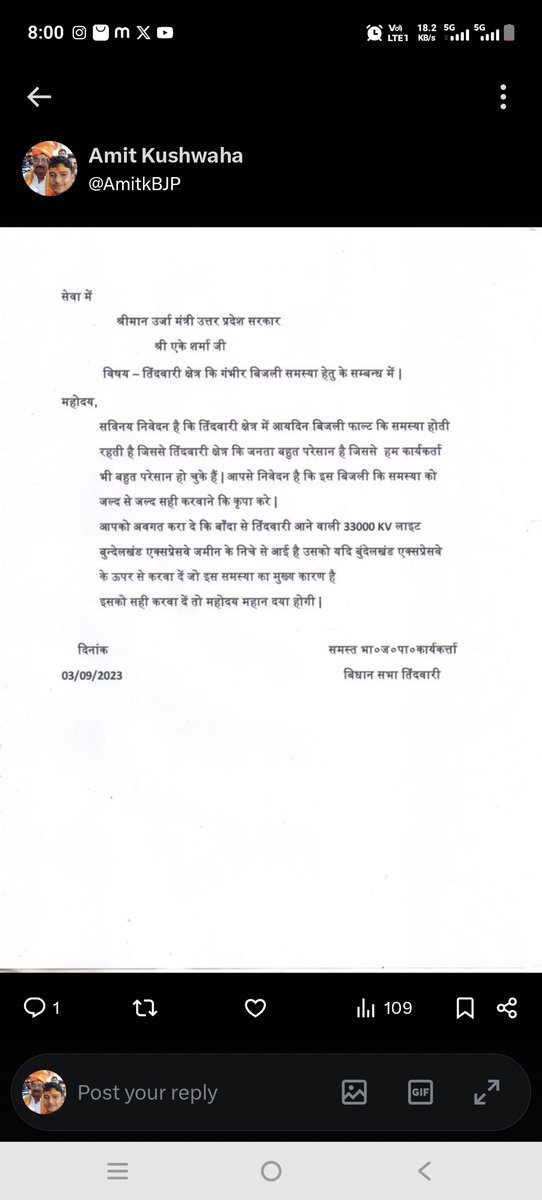 8:00
Vo) LTE1
18.2 KB/s
5G
5G
Amit Kushwaha
@AmitkBJP
सेवा में
श्रीमान उर्जा मंत्री उत्तर प्रदेश सरकार
श्री एके शर्मा जी
विषय – तिंदवारी क्षेत्र कि गंभीर बिजली समस्या हेतु के सम्बन्ध में |
महोदय,
सविनय निवेदन है कि तिंदवारी क्षेत्र में आयदिन बिजली फाल्ट कि समस्या होती
रहती है जिससे तिंदवारी क्षेत्र कि जनता बहुत परेसान है जिससे हम कार्यकर्ता
भी बहुत परेसान हो चुके हैं | आपसे निवेदन है कि इस बिजली कि समस्या को
जल्द से जल्द सही करवाने कि कृपा करे |
आपको अवगत करा दे कि बाँदा से तिंदवारी आने वाली 33000 KV लाइट
बुन्देलखंड एक्सप्रेसवे जमीन के निचे से आई है उसको यदि बुंदेलखंड एक्सप्रेसवे
के ऊपर से करवा दें जो इस समस्या का मुख्य कारण है
इसको सही करवा दें तो महोदय महान दया होगी |
दिनांक
समस्त भा०ज०पा०कार्यकर्त्ता
03/09/2023
बिधान सभा तिंदवारी
1
109
Post your reply
GIF